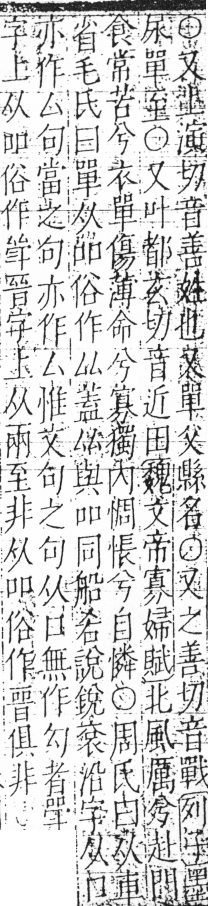 ○又演切音善姓也又單父縣名○又之善切音戰列子墨
尿單至○又叶都玄切音近田魏文帝寡婦賦北風厲兮赴門
食常苦兮衣單傷薄命兮寡獨內惆悵兮自憐○周氏曰从車
省毛氏曰單从吅俗作厸蓋厸與吅同船若說銳袞沿字从口
亦作厶句當之句亦作厶惟文句之句从口無作勾者單
字上从吅俗作晉字上从兩至非从吅俗作晋俱非